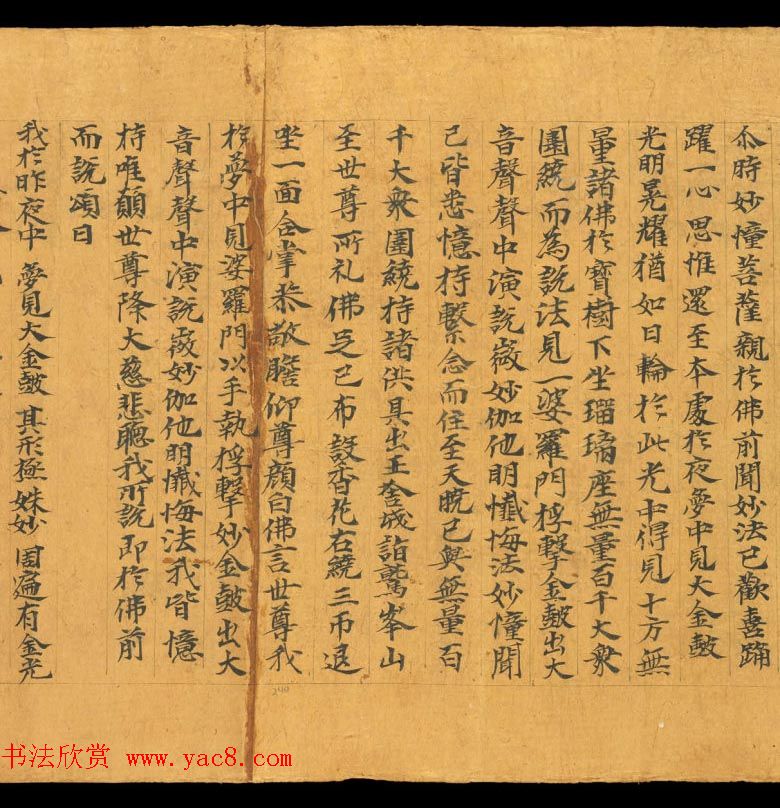 尒時妙憧菩薩親於佛前聞妙法已歡喜踊
躍一心思惟還至本處於夜夢中見大金皷
光明晃耀猶如日輪於此光中得見十方無
量諸佛於寶樹下坐瑠璃座無量百千大衆
圍繞而為說法見一婆羅門桴擊金皷出大
音聲聲中演說㣲妙伽他明懺悔法妙憧聞
已皆悉憶持繫念而住至天曉已與無量百
千大衆圍繞持諸供具出王舍城詣鷲峯山
至世尊所礼佛足已布設香花右繞三帀退
坐一面合掌恭敬瞻仰尊顏白佛言世尊我
於夢中見婆羅門以手執桴擊妙金皷出大
音聲聲中演說㣲妙伽他明懺悔法我皆憶
持唯願世尊降大慈悲聽我所說即於佛前
而說頌曰
我於昨夜中 夢見大金皷 其形極姝妙 周遍有金光
240
书法欣赏 www.yac8.com